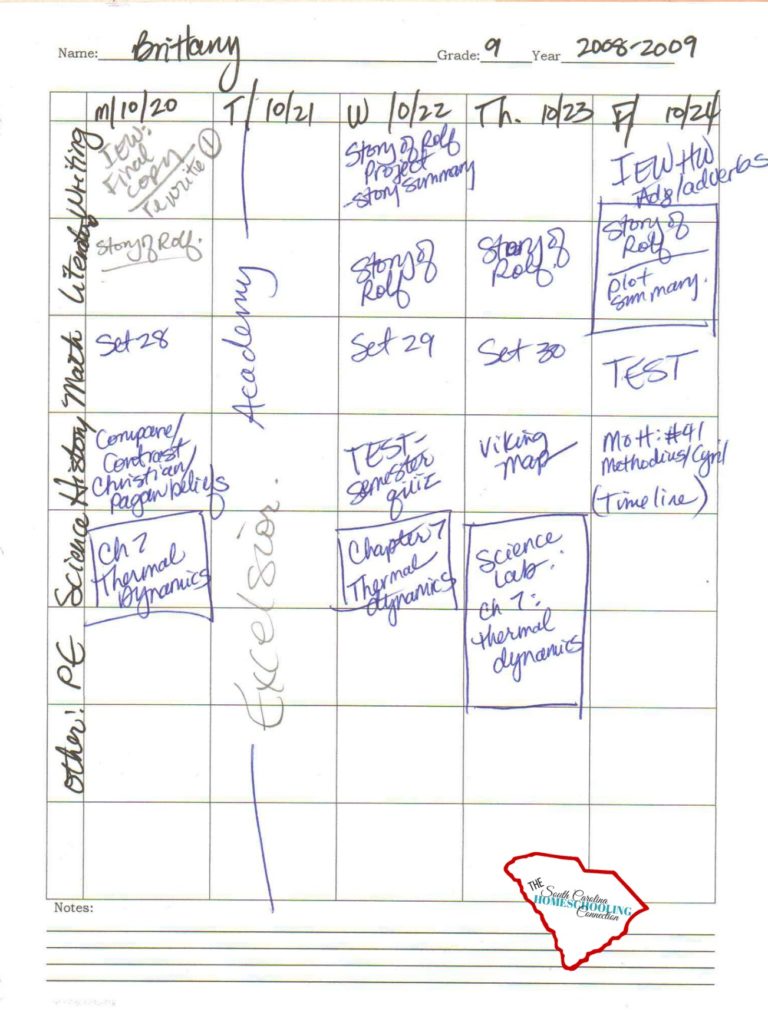 Name: Brittany Grade: 9 Year 2008-2009
M/10/20 T/ 10/21 W 10/22 Th. 10/23 F/ 10/24
Writing
IEW:
Final
Copy
rewrite 1
Story of Rolf
Project
-story summary
IEW HW
Adj/adverbs
Literature
Story of Rolf.
Story of
Rolf
Story of
Rolf
Story of
Rolf
plot
summary.
Math
Set 28
Set 29
Set 30
TEST
History
Compare/
Contrast
Christian/
Pagan beliefs
TEST-
semester
quiz
Viking
Map
MOH: #41
Methodius/Cyril
(Timeline)
Science
Ch 7
Thermal
Dynamics
Chapter 7
Thermal
dynamics
Science
Lab:
Ch 7:
thermal
dynamics
PE
other:
Excelsior Academy
Notes:
THE
South Carolina
HOMESCHOOLING
Connection